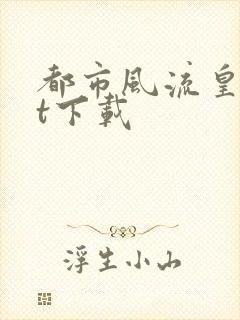 都市風流皇
t下載
浮生小山